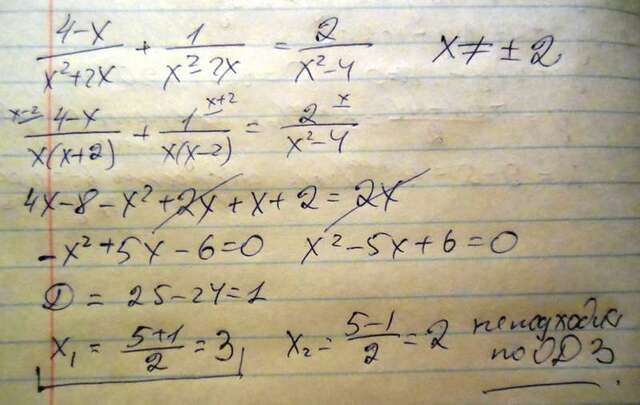 (4-x)/(x²+2x) + 1/(x²-2x) = 2/(x²-4) x ≠ ± 2
x-2 (4-x)/(x(x+2)) + 1/(x(x-2)) x+2 = 2/(x²-4) x
4x-8-x²+2x+x+2=2x
-x²+5x-6=0 x²-5x+6=0
D = 25-24=1
x₁ = (5+1)/2 = 3, x₂ = (5-1)/2 = 2 не подходит
по ОДЗ